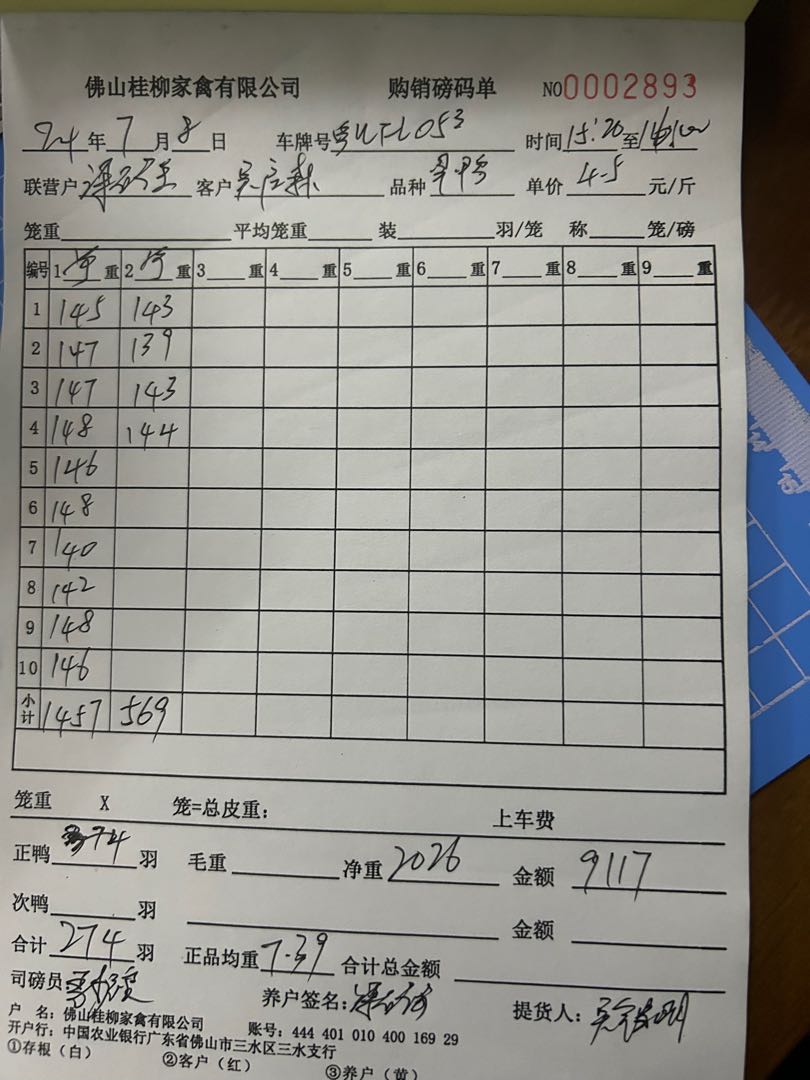 佛山桂柳家禽有限公司 购销磅码单 NO0002893
24年7月8日 车牌号 时间15:20至
联营户 客户 品种 单价4.5元/斤
笼重 平均笼重 装 羽/笼 称 笼/磅
编号 1 重 2 重 3 重 4 重 5 重 6 重 7 重 8 重 9 重
1 145 143
2 147 139
3 147 143
4 148 144
5 146
6 148
7 140
8 142
9 148
10 146
小计 1457 569
笼重 X 笼=总皮重: 上车费
正鸭 274 羽 毛重 净重 2026 金额 9117
次鸭 羽 金额
合计 274 羽 正品均重 7.39 合计总金额
司磅员 养户签名: 提货人:
户 名: 佛山桂柳家禽有限公司 账号: 444 401 010 400 169 29
开户行: 中国农业银行广东省佛山市三水区三水支行
①存根(白) ②客户(红) ③养户(黄)